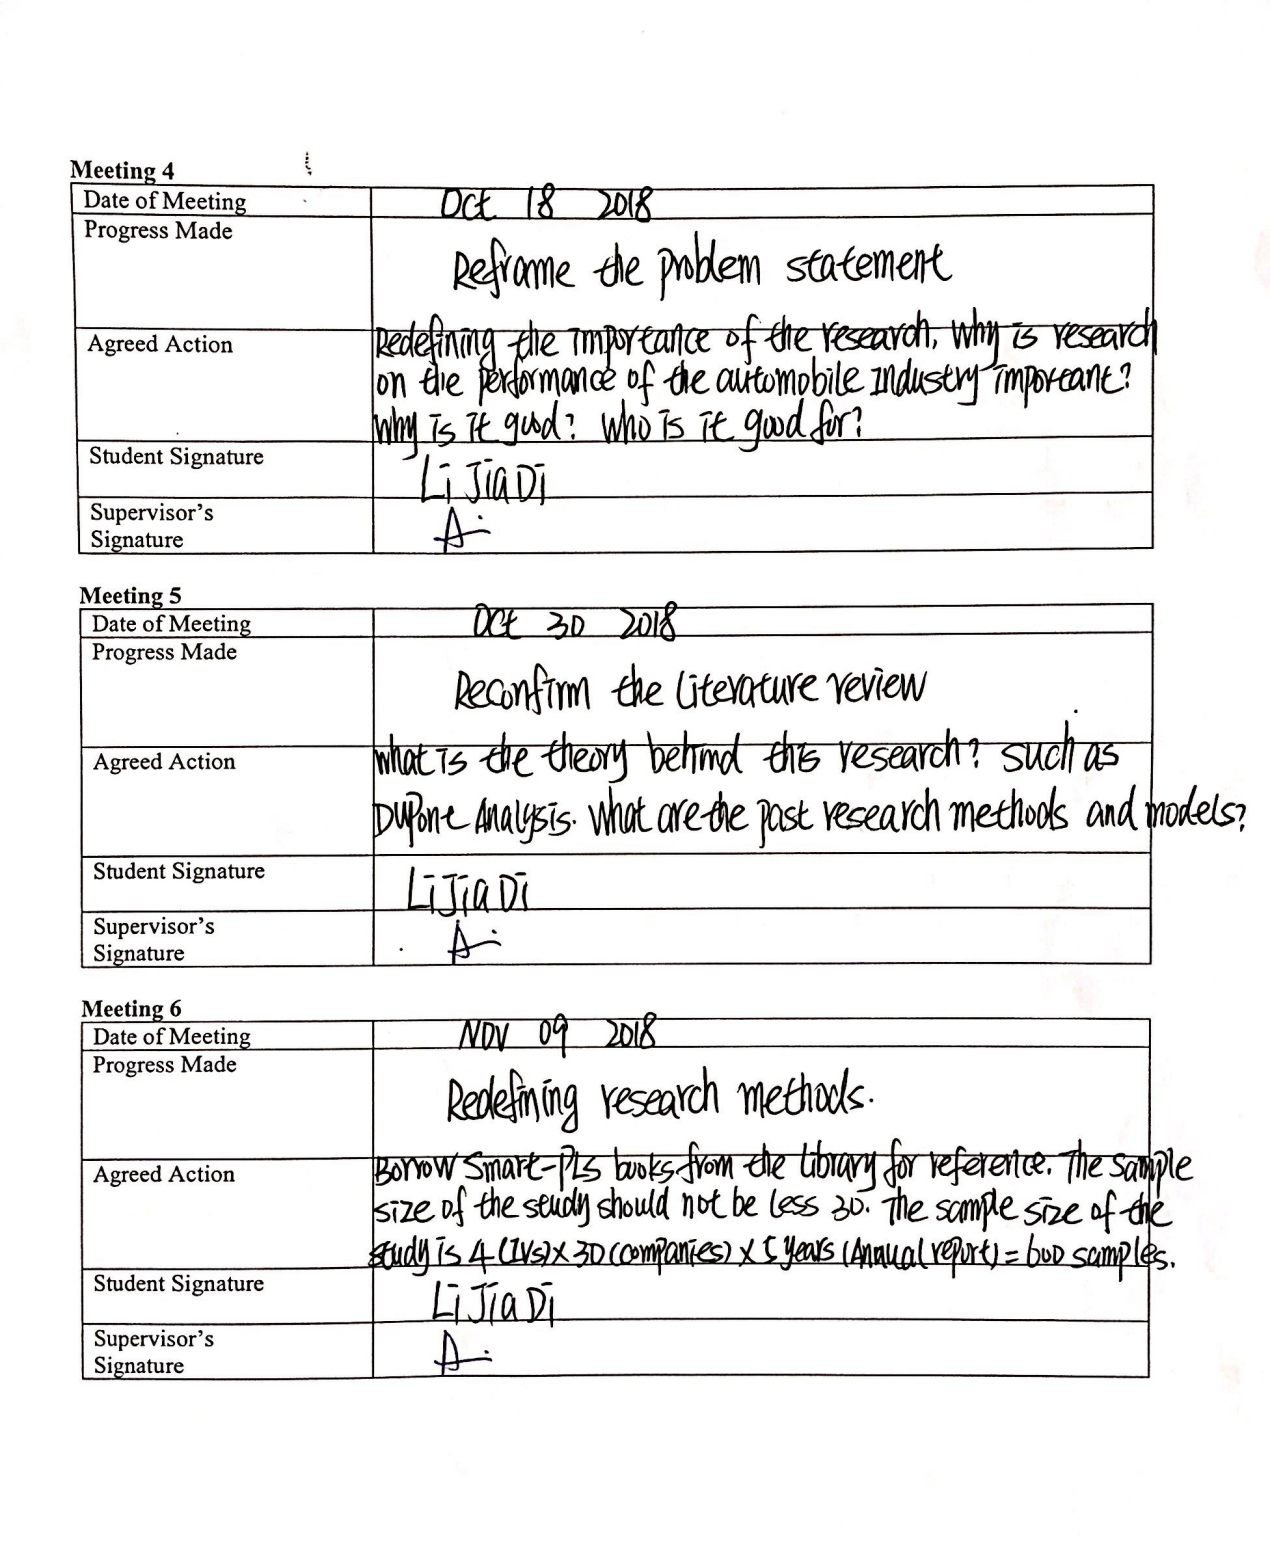 Meeting 4
Date of Meeting Oct 18 2018
Progress Made
Reframe the problem statement
Agreed Action
Redefining the importance of the research. Why is research
on the performance of the automobile industry important?
Why is it good? Who is it good for?
Student Signature Li JiaDi
Supervisor's
Signature
Meeting 5
Date of Meeting Oct 30 2018
Progress Made
Reconfirm the literature review
Agreed Action
What is the theory behind this research? such as
DuPone Analysis. What are the past research methods and models?
Student Signature Li JiaDi
Supervisor's
Signature
Meeting 6
Date of Meeting Nov 09 2018
Progress Made
Redefining research methods.
Agreed Action
Borrow Smart-PLS books from the library for reference. The sample
size of the study should not be less 30. The sample size of the
study is 4 (IVs) x 30 (companies) x 5 years (Annual report) = 600 samples.
Student Signature Li JiaDi
Supervisor's
Signature